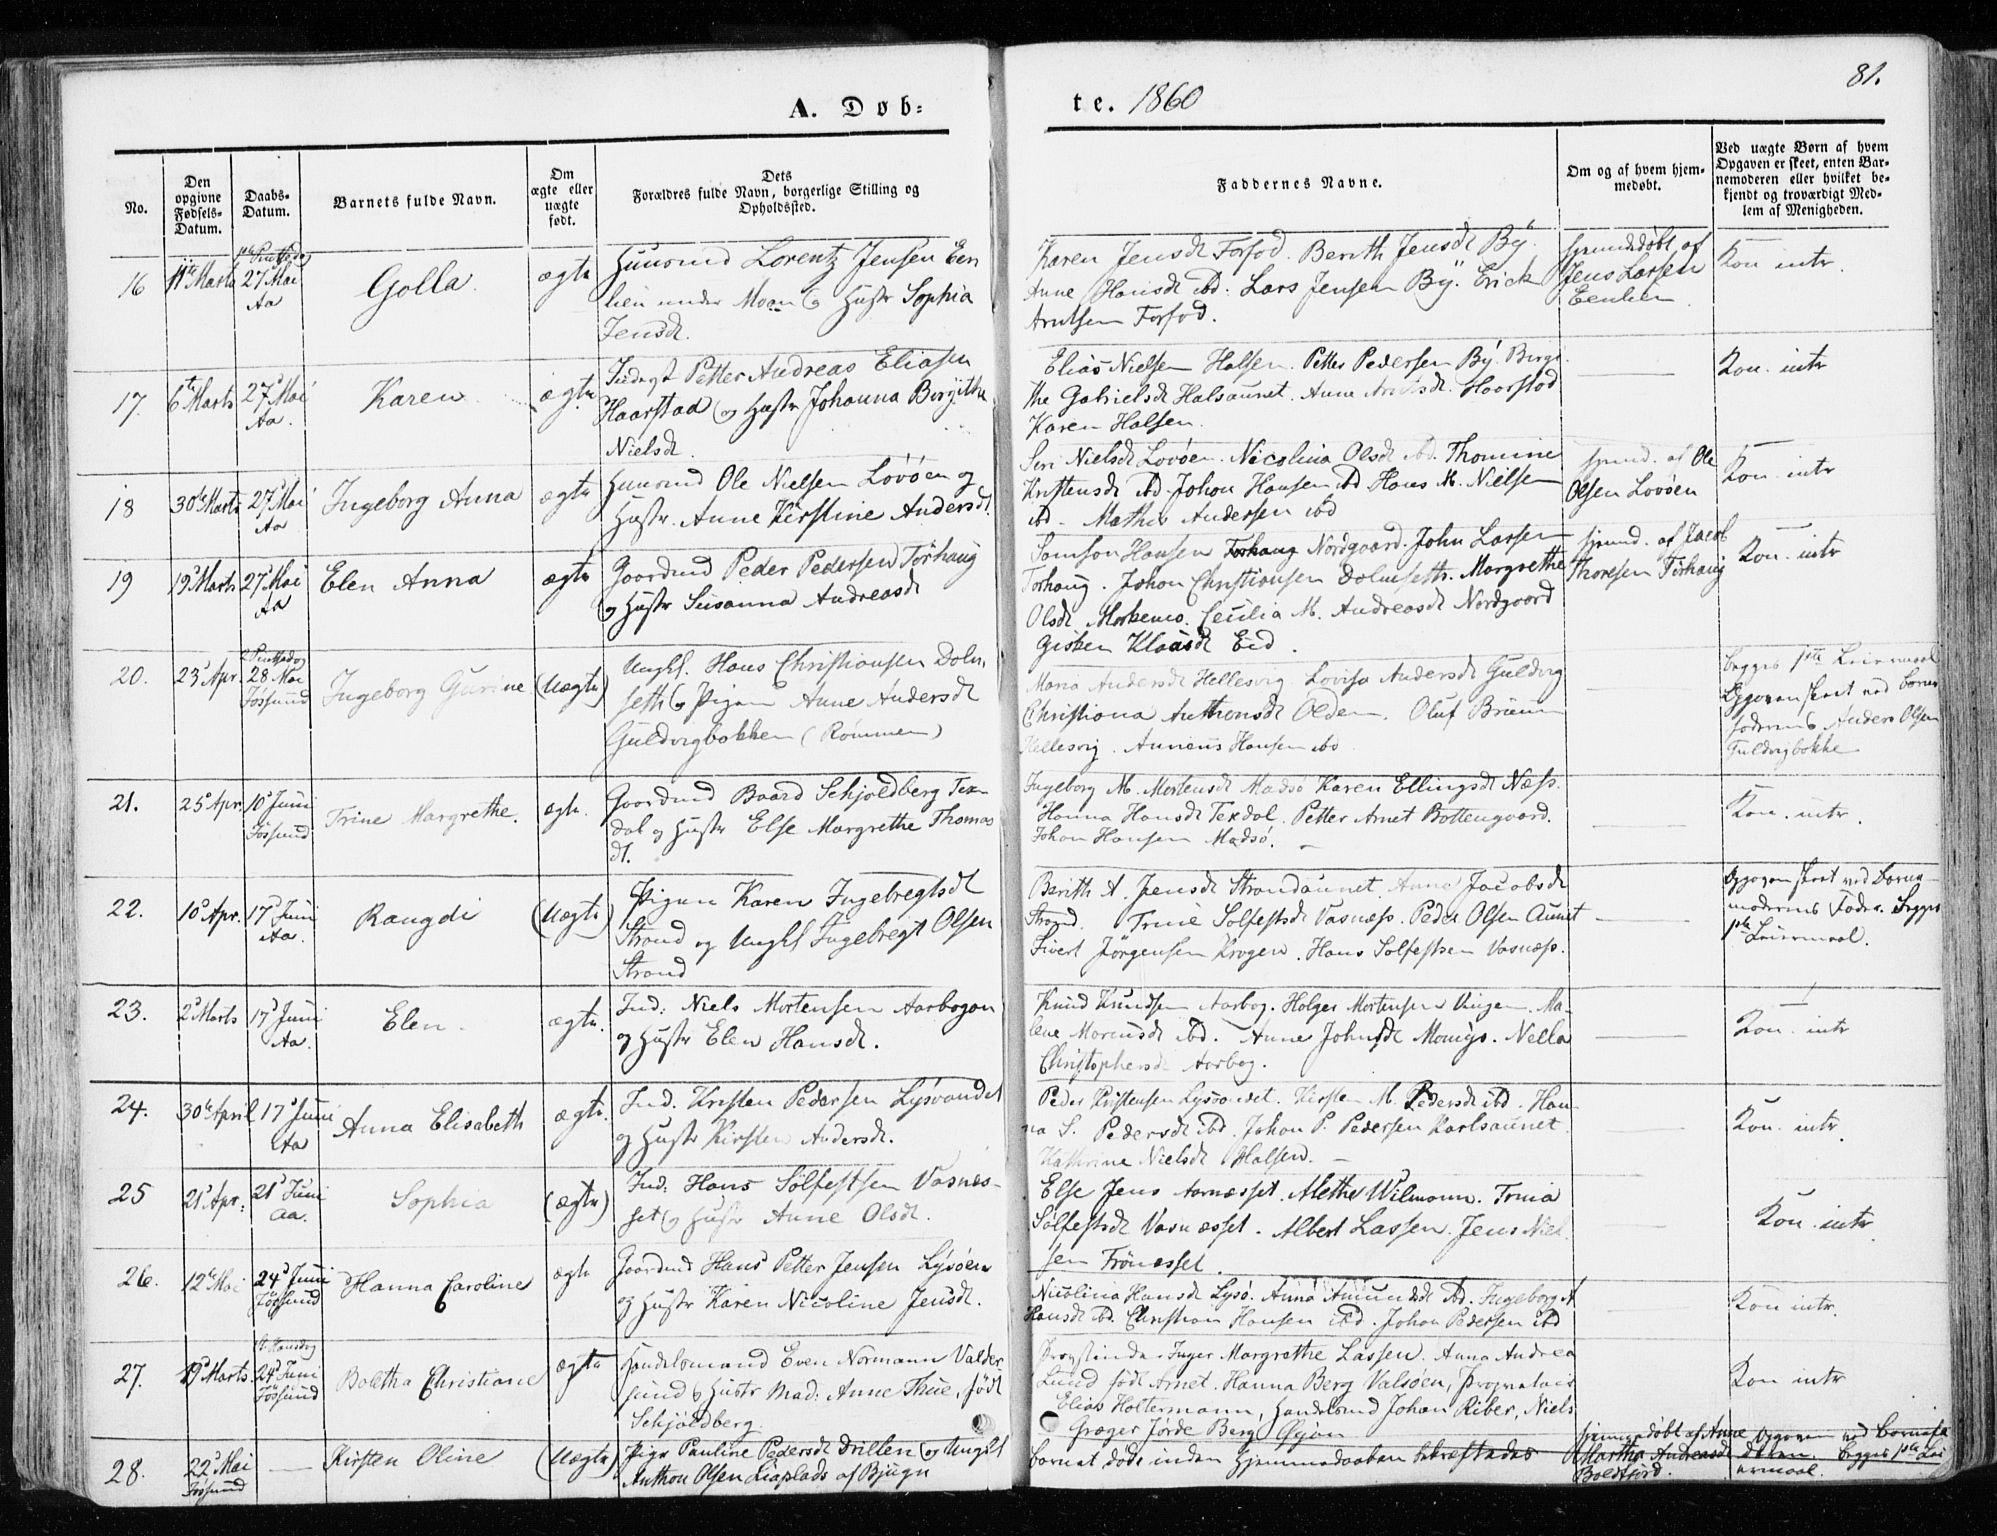 81.
A. Døb-
te. 1860
No.
Den
opgivne
Fødsels-
Datum.
Daabs-
Datum.
Barnets fulde Navn.
Om
ægte eller
uægte
født.
Dets
Forældres fulde Navn, borgerlige Stilling og
Opholdssted.
Faddernes Navne.
Om og af hvem hjem-
medøbt.
Ved uægte Børn af hvem
Opgaven er skeet, enten Bar-
nemoderen eller hvilket be-
kjendt og troværdigt Med-
lem af Menigheden.
16
11te Marts
27 Mai
Aa
Golla.
ægte
Huusmd Lorentz Jensen Een
lien under Moan og Hustr Sophia
Jensdt.
Karen Jensdt Forfod. Berith Jensdt By.
Anne Hansdt ibd. Lars Jensen By. Erick
Arntsen Forfod.
hjemmedøbt af
Jens Larsen
Eenlien
Kon intr.
17.
6te Marts
27 Mai
Aa.
Karen
ægte
Inderst Petter Andreas Eliasen
Haarstad og Hustr Johanna Bergithe
Nielsdt.
Elias Nielsen Halsen. Petter Pedersen By. Berge
the Gabrielsdt Halsaunet. Anne Arntsdt. Haarstad
Karen Halsen.
Kon. intr
18
30te Marts
27 Mai
Aa
Ingeborg Anna
ægte
Huusmd Ole Nielsen Lovøen og
Hustr. Anne Kirstine Andersdt.
Seri Nielsdt Lovøen. Nicolina Olsdt ibd. Thomine
Kristensdt ibd. Johan Hansen ibd Hans M. Nielsen
ibd. Mathis Andersen ibd
hjemd. af Ole
Olsen Lovøen
Kon. intr
19
19 Marts
27 Mai
Aa
Elen Anna
ægte
Gaardmd Peder Pedersen Torhaug
og Hustr Susanna Andreasdt
Samson Hansen Torhaug Nordgaard. John Larsen
Torhaug. Johan Christiansen Dolmseth. Margrethe
Olsdt Morkemo. Cecilia M. Andreasdt Nordgaard
Gisken Klausdt Eid.
hjemd. af Jacob
Thoresen Torhaug
Kon. intr
20.
23 Apr.
28 Mai
Jøssund
Ingeborg Gurine
(Uægte)
Ungkl. Hans Christiansen Dolm
seth og Pigen Anne Andersdt
Guldvigbakken (Rømmen)
Maria Andersdt Hellesvig. Lovisa Andersdt Guldvig
Christiana Anthonsdt Olden. Oluf Bruun
Hellesvig. Annæus Hansen ibd.
begges 1ste Leiermaal
Opgaven skeet ved Barne
faderens Anders Olsen
Guldvigbakke
21.
25 Apr.
10 Juni
Jøssund
Trine Margrethe.
ægte.
Gaardmd Baard Schjoldberg Tex-
dal og Hustr Else Margrethe Thomas
dt.
Ingeborg M. Mortensdt Madsø Karen Ellingsdt Næss.
Hanna Hansdt Texdal. Petter Arnet Bottengaard.
Johan Hansen Madsø.
Kon. intr.
22.
10 Apr.
17 Juni
Aa.
Rangdi
(Uægte)
Pigen Karen Ingebregtsdt
Strand og Ungkl Ingebregt Olsen
Strand
Berith A. Jensdt Strandaunet. Anne Jacobsdt
Strand. Trine Solfestsdt Vasnæss. Peder Olsen Aunet
Sivert Jørgensen Krogen. Hans Solfestsen Vasnæss.
Opgaven skeet ved Barne-
moderens Fader. begges
1ste Leiermaal.
23.
2 Marts
17 Juni
Aa.
Elen
ægte.
Ind: Niels Mortensen Aarbogen
og Hustr Elen Hansdt.
Knud Knudsen Aarbog. Holger Mortensen Vingen. Ma-
lene Marensdt ibd. Anne Johnsdt Monigs. Nella
Christophersdt Aarbog.
Kon. intr
24.
30te April
17 Juni
Aa
Anna Elisabeth
ægte.
Ind. Kristen Pedersen Lysvandet
og Hustr Kirsten Andersdt.
Peder Kristensen Lysvandet. Kirsten M. Pedersdt ibd. Han-
na S. Pedersdt ibd. Johan P. Pedersen Karlsaunet.
Kathrine Nielsdt Halsen.
Kon. intr.
25
21 Apr.
21 Juni
Aa.
Sophia
(ægte)
Ind: Hans Sølfestsen Vasnes-
set og Hustr Anne Olsdt.
Else Jens Aarnæsset. Alethe Wilmann. Trina
Sølfestsdt Vasnæsset. Albert Lassen. Jens Niel
sen Frønesset.
Kon. intr.
26.
12te Mai
24 Juni
Jøssund
Hanna Caroline
ægte
Gaardmd Hans Petter Jensen Lysøen
og Hustr Karen Nicoline Jensdt.
Nicolina Hansdt Lysø. Anna Amundsdt ibd. Ingeborg A
Hansdt ibd. Christian Hansen ibd. Johan Pedersen ibd
Kon intr.
27.
19 Marts.
St. Hansdag
24 Juni
Jøssund
Boletha Christiane
ægte
Handelsmand Even Normann Valder-
sund og Hustr Mad: Anne Thue, født
Schjoldberg.
Provstinde Inger Margrethe Lassen. Anna Andrea
Lund født Arnet. Hanna Berg Valsøen, Proprietair
Elias Holtermann, Handelsmd Johan Riber, Niels
Græger Jørde Berg
Kon intr.
28.
22 Mai
Jøssund
Kirsten Oline
(Uægte)
Pige Pauline Pedersdt Drillen og Ungkl
Anthon Olsen Liaplads af Bjugn
barnet døde inden Hjemmedaaben bekræftedes
hjemmedøbt af Anne
Martha Andreasdt
Boldfjord.
Opgaven ved Barnefa
deren. begges 1ste Lei
ermaal.